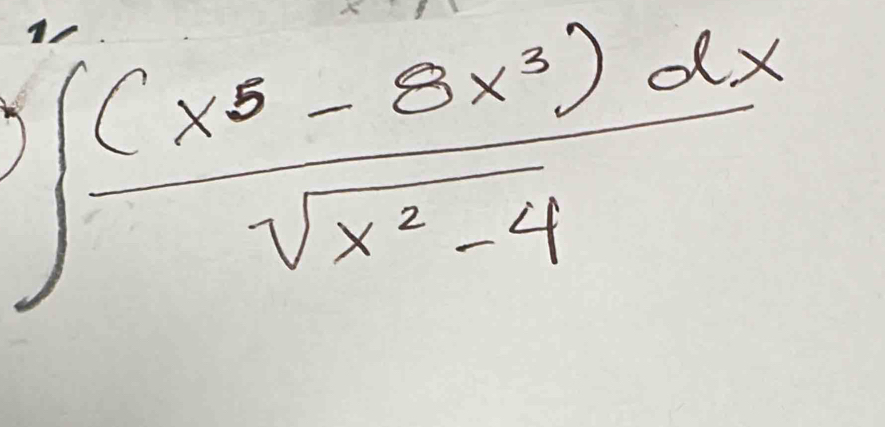 ) ∫ (x⁵ - 8x³) dx / √(x² - 4)